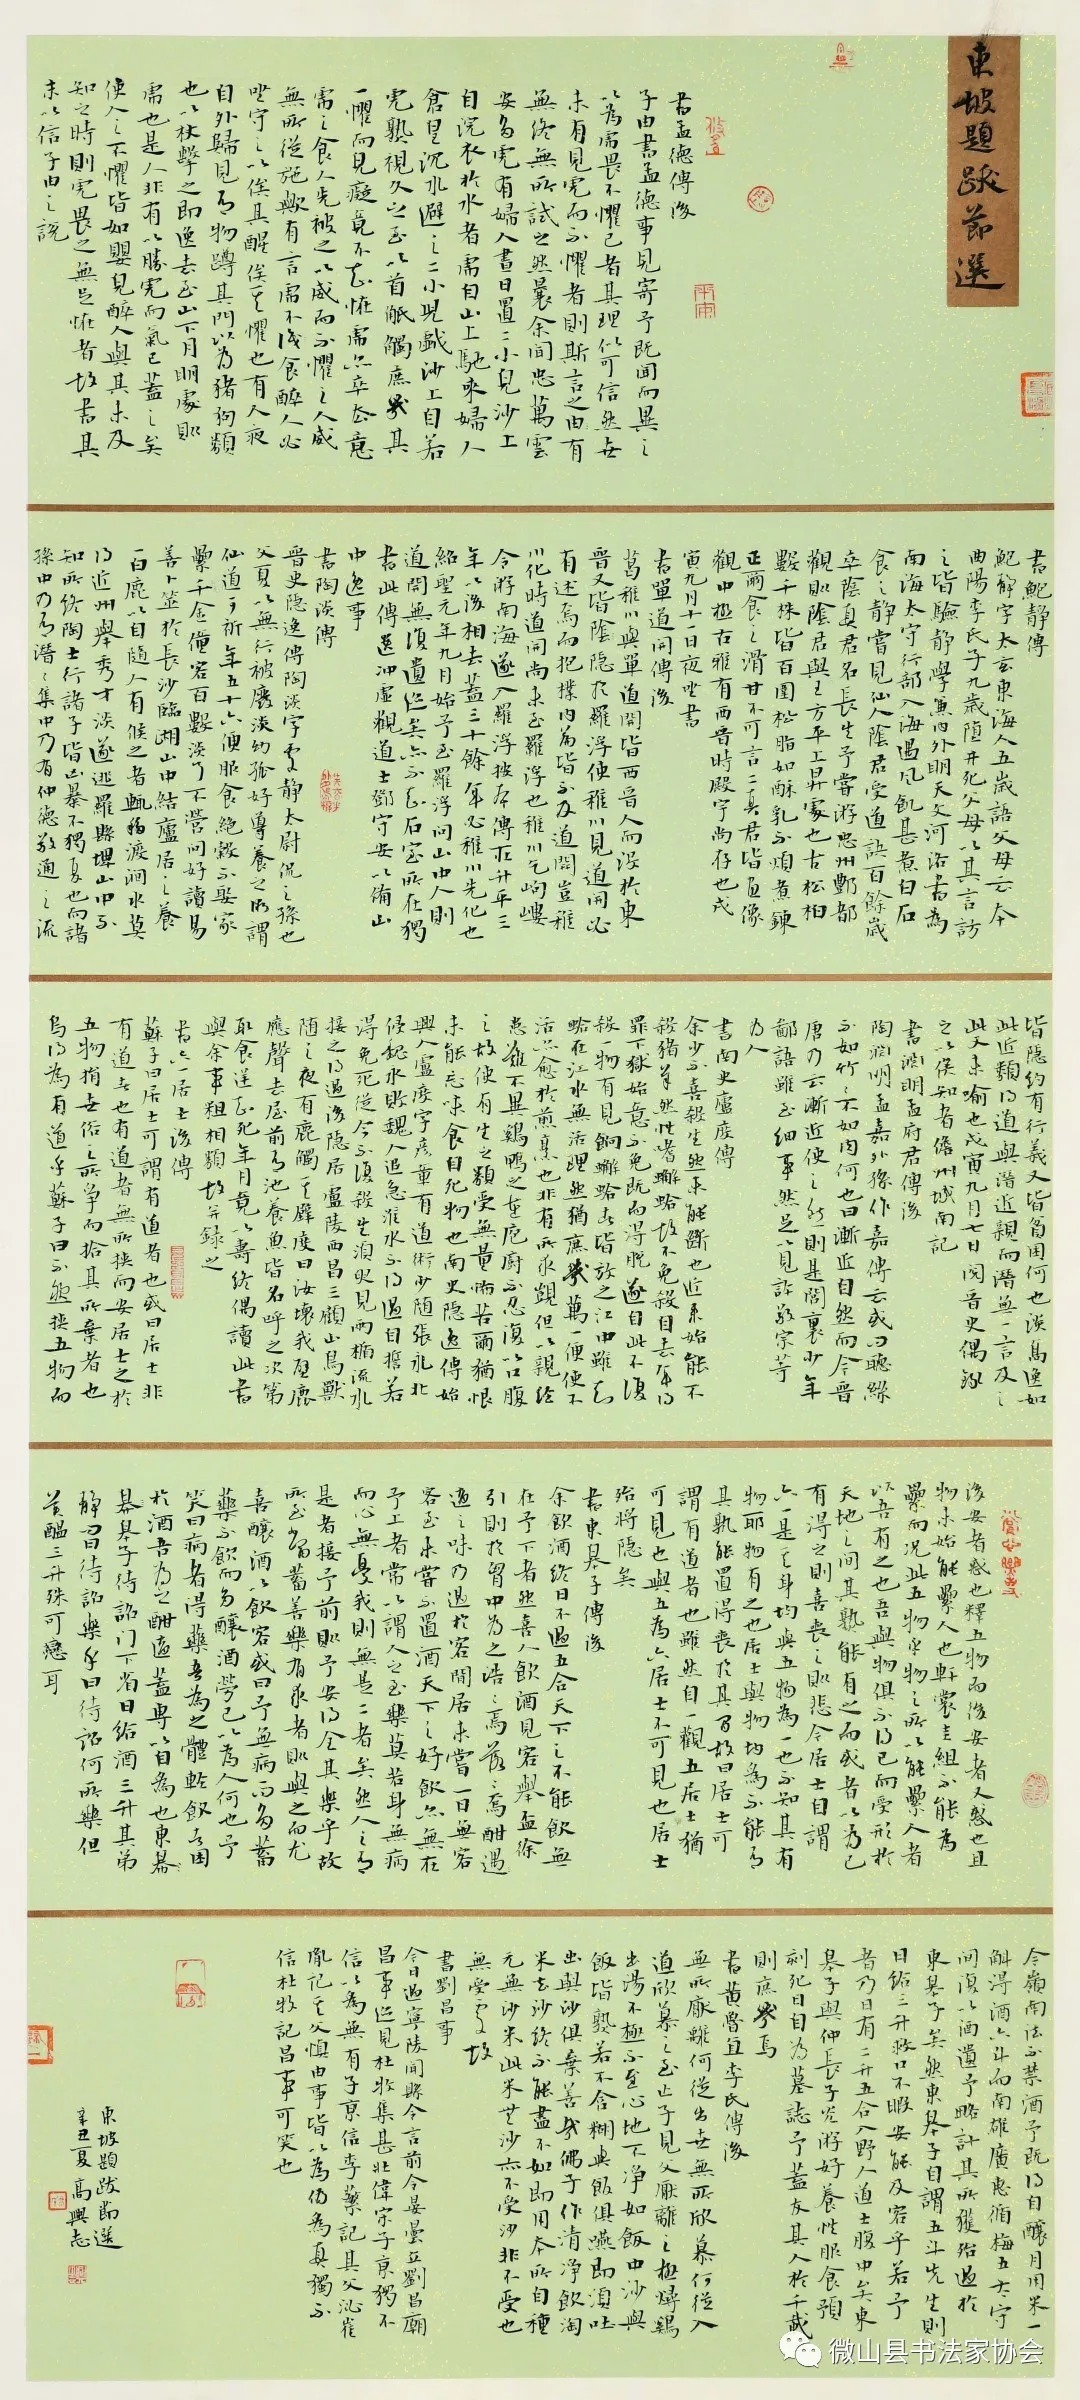 東坡題跋節選
書孟德傳後
子由書孟德事見寄予既聞而異之
以為虎畏不懼己者其理似可信然世
未有見虎而不懼者則斯言之由有
無終無所試之然曩余聞忠萬雲
安多虎有婦人晝日置二小兒沙上
自浣衣於水者虎自山上馳來婦人
倉皇沉水避之二小兒戲沙上自若
虎熟視久之至以首觝觸庶幾其
一懼而兒癡竟不知怪虎亦卒去意
虎之食人先被之以威而不懼之人威
無所從施歟有言虎不食醉人必
坐守之以俟其醒俟其懼也有人夜
自外歸見有物蹲其門以為豬狗類
也以杖擊之即逸去至山下月明處則
虎也是人非有以勝虎而氣已蓋之矣
使人之不懼皆如嬰兒醉人與其未及
知之時則虎畏之無足怪者故書其
末以信子由之說
書鮑靜傳
鮑靜字太玄東海人五歲語父母云本
曲陽李氏子九歲墮井死父母以其言訪
之皆驗靜學兼內外明天文河洛書為
南海太守行部入海遇風飢甚煮白石
食之靜嘗見仙人陰君受道訣百餘歲
卒陰真君名長生予嘗遊忠州酆都
觀則陰君與王方平上昇處也古松柏
數千株皆百圍松脂如酥乳不煩煮鍊
正爾食之滑甘不可言二真君皆畫像
觀中極古雅有西晉時殿宇尚存也戊
寅九月十一日夜坐書
書單道開傳後
葛稚川與單道開皆西晉人而沒於東
晉又皆隱於羅浮使稚川見道開必
有述焉而抱撲內篇皆不及道開豈稚
川化時道開尚未至羅浮也稚川乞岣嶁
令游南海遂入羅浮按本傳在升平三
年以後相去蓋三十餘年必稚川先化也
紹聖元年九月始予至羅浮問山中人則
道開無復遺跡矣亦不知石室所在獨
書此傳遺沖虛觀道士鄧守安以備山
中逸事
書陶淡傳
晉史隱逸傳陶淡字處靜太尉侃之孫也
父夏以無行被廢淡幼孤好導養之術謂
仙道可祈年五十六便服食絕穀不娶家
累千金僮客百數淡了不營問好讀易
善卜筮於長沙臨湖山中結廬居之養
一白鹿以自隨人有候之者輒移渡澗水莫
得近州舉秀才淡遂逃羅縣埤山中不
知所終陶士行諸子皆凶暴不獨夏也而諸
孫中乃有潛潛集中乃有仲德敬通之流
皆隱約有行義又皆貧困何也淡高逸如
此近類得道與潛近親而潛無一言及之
此又未喻也戊寅九月七日閱晉史偶錄
之以俟知者儋州城南記
書淵明孟府君傳後
陶淵明孟嘉外孫作嘉傳云或問聽絲
不如竹竹不如肉何也曰漸近自然而今晉
唐乃云漸近使之然則是閭裏少年
鄙語雖至細事然足以見許敬宗等
為人
書南史盧度傳
余少不喜殺生然未能斷也近來始能不
殺豬羊然性嗜蟹蛤故不免殺自去年得
罪下獄始意不免既而得脫遂自此不復
殺一物有見餉蟹蛤者皆放之江中雖知
蛤在江水無活理然猶庶幾萬一便使不
活亦愈於煎烹也非有所求覬但以親經
患難不異雞鴨之在庖廚不忍復以口腹
之故使有生之類受無量怖苦爾猶恨
未能忘味食自死物也南史隱逸傳始
興人盧度字彥章有道術少隨張永北
侵魏永敗魏人追急淮水不得過自誓若
得免死從今不復殺生須臾見兩楯流來
接之得過後隱居廬陵西昌三顧山鳥獸
隨之夜有鹿觸其壁度曰汝壞我壁鹿
應聲去屋前有池養魚皆名呼之次第
取食逆知死年月竟以壽終偶讀此書
與余事粗相類故并錄之
書六一居士後傳
蘇子曰居士可謂有道者也或曰居士非
有道者也有道者無所挾而安居士之於
五物捐世俗之所爭而拾其所棄者也
烏得為有道乎蘇子曰不然挾五物而
後安者惑也釋五物而後安者又惑也且
物未始能累人也軒裳圭組不能為
累而況此五物乎物之所以能累人者
以吾有之也吾與物俱不得已而受形於
天地之間其孰能有之而或者以為己
有得之則喜喪之則悲今居士自謂
六一是其身均與五物為一也不知其有
物耶物有之也居士與物均為不能有
其孰能置得喪於其間故曰居士可
謂有道者也雖然自一觀五居士猶
可見也與五為六居士不可見也居士
殆將隱矣
書東皋子傳後
余飲酒終日不過五合天下之不能飲無
在予下者然喜人飲酒見客舉盃徐
引則於胸中為之浩浩焉落落焉酣適
適之味乃過於客閒居未嘗一日無客
客至未嘗不置酒天下之好飲亦無在
予上者常以謂人之至樂莫若身無病
而心無憂我則無是二者矣然人之有
是者接予前則予安得全其樂乎故
所至當蓄善藥有求者則與之而尤
喜釀酒以飲客或曰予無病而多蓄
藥不飲而多釀酒勞己以為人何也予
笑曰病者得藥吾為之體輕飲者困
於酒吾為之酣適蓋專以自為也東皋
子待詔門下省日給酒三升其弟
靜問曰待詔樂乎曰待詔何所樂但
美醞三升殊可戀耳
今嶺南法不禁酒予既得自釀月用米一
斛得酒六斗而南雄廣惠循梅五太守
間復以酒遺予略計其所獲殆過於
東皋子矣然東皋子自謂五斗先生則
日給三升救口不暇安能及客乎若予
者乃日有二升五合入野人道士腹中矣東
皋子與仲長子光游好養性服食預
刻死日自為墓誌予蓋友其人於千載
則庶幾焉
書黃魯直李氏傳後
無所厭離何從出世無所欣慕何從入
道欣慕之至亡子見父厭離之極燖雞
出湯不極不至心地不淨如飯中沙與
飯皆熟若不含糊與飯俱嚥即須吐
出與沙俱棄善哉佛子作清淨飲淘
米去沙終不能盡不如即用本所自種
元無沙米此米無沙亦不受沙非不受也
無受處故
書劉昌事
今日過寧陵聞縣令言前令晏曇立劉昌廟
昌事跡見杜牧集甚壯偉宋子京獨不
信以為無有子京信李蘩記其父泌崔
胤記其父慎由事皆以為偽為真獨不
信杜牧記昌事可笑也
東坡題跋節選
辛丑夏高興志
微山县书法家协会